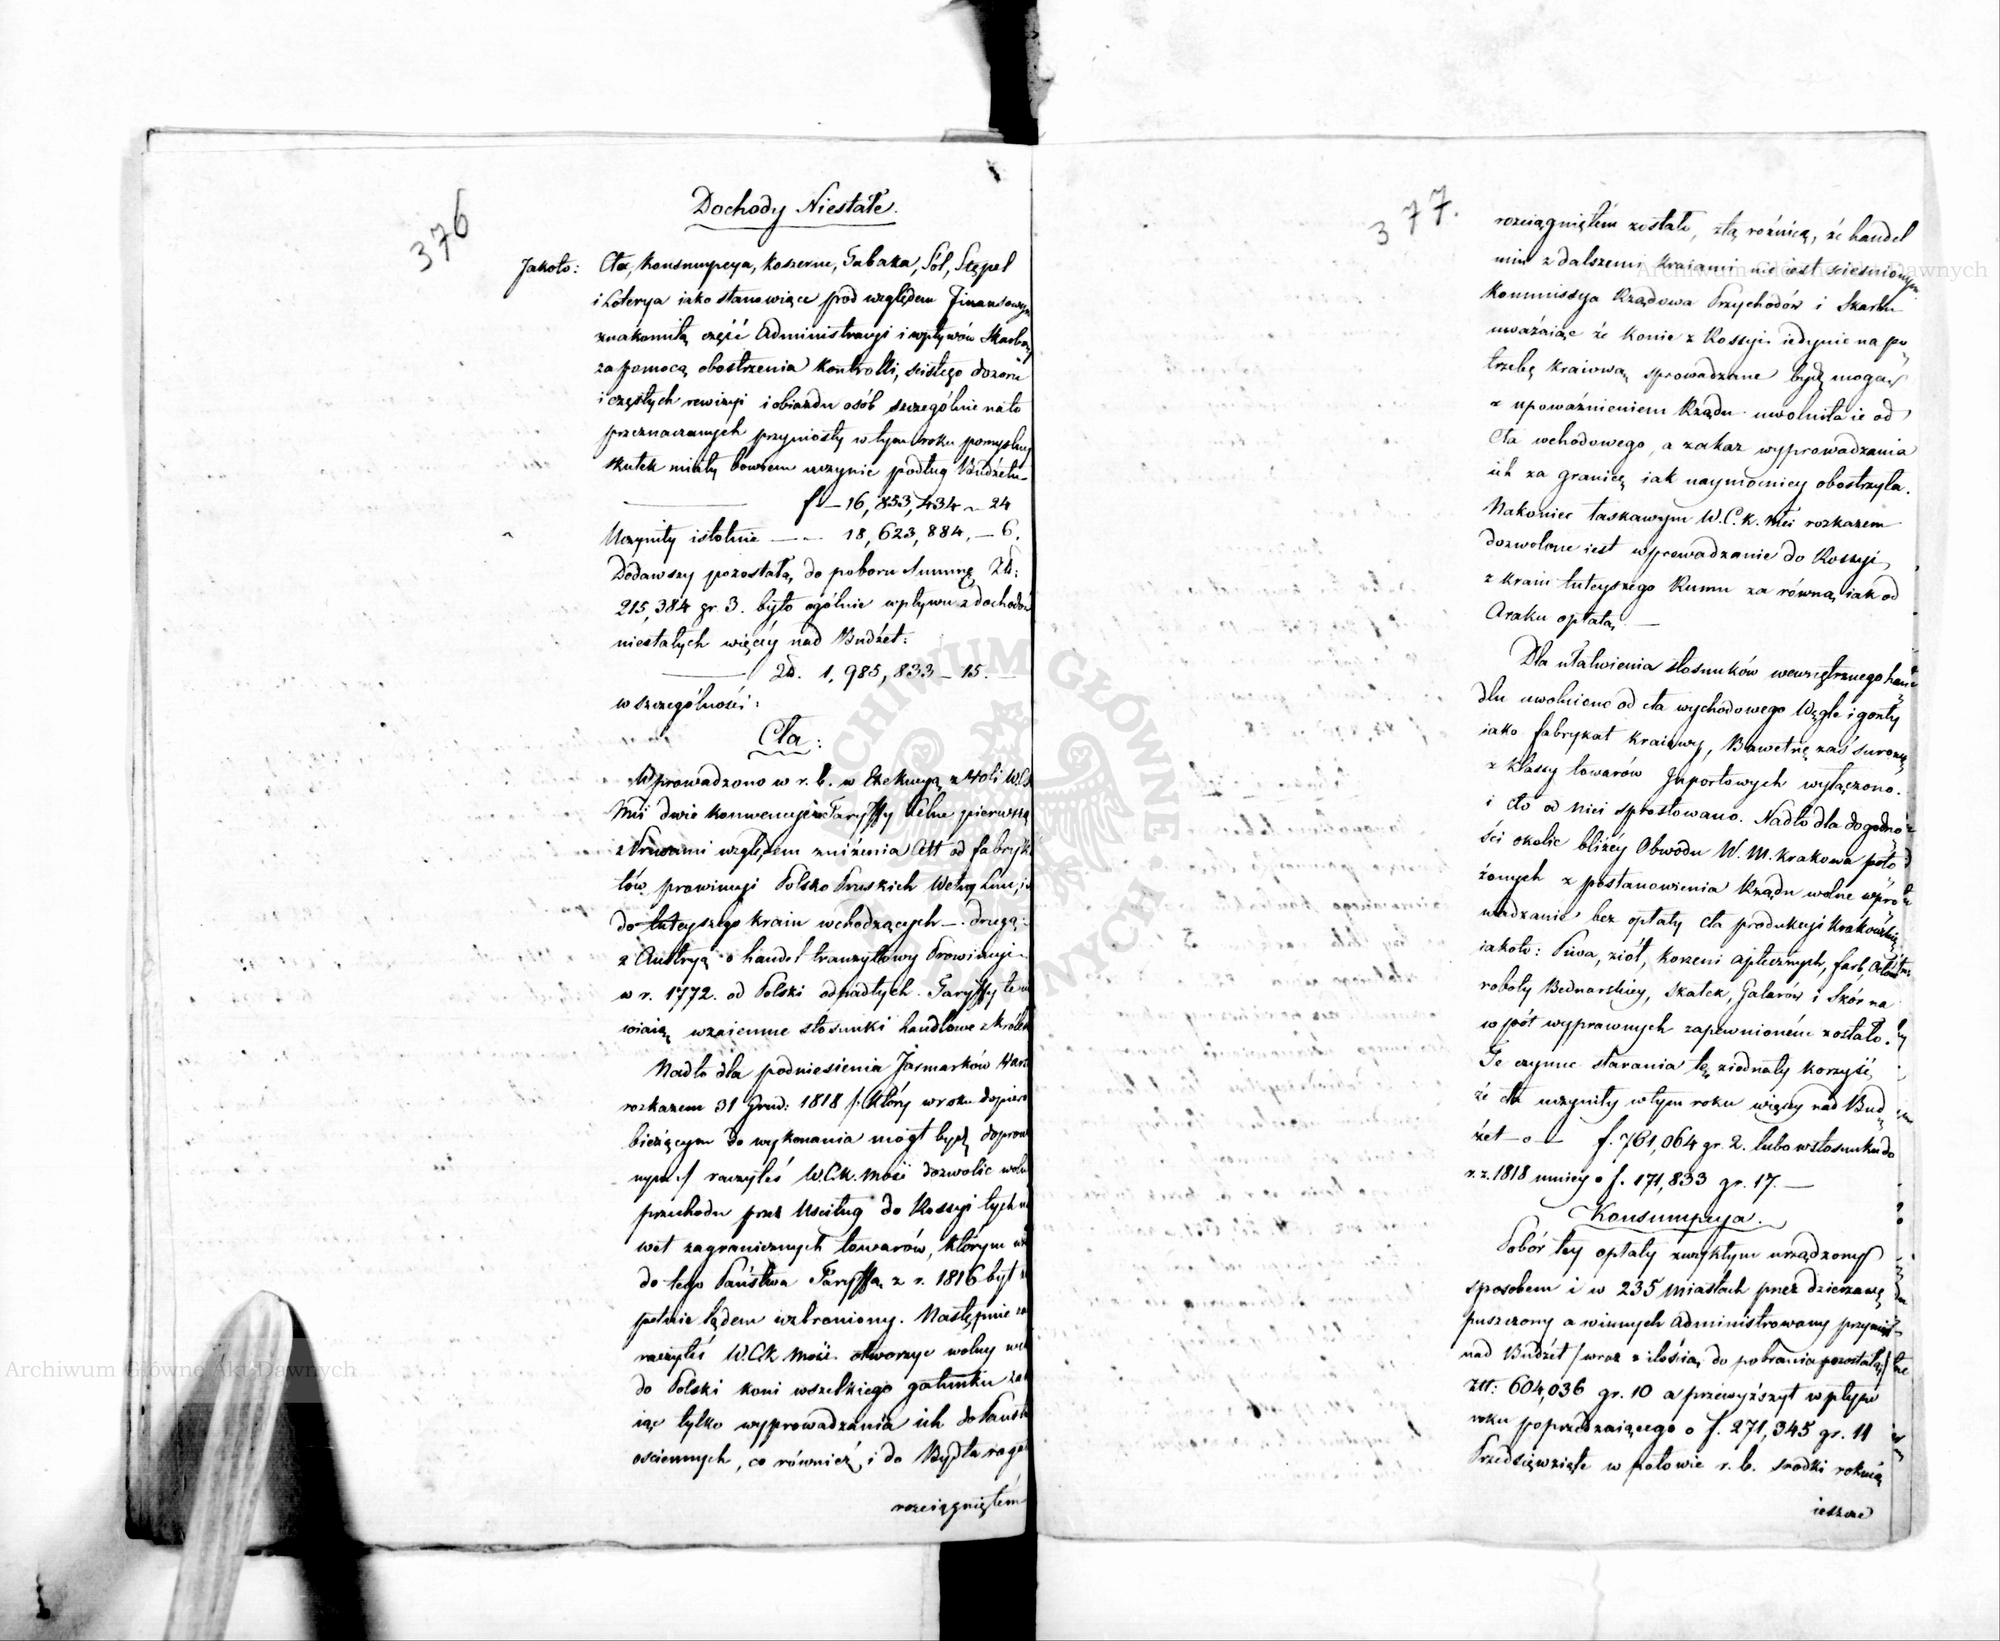 376
Dochody Niestałe.
Jakoto: Cła, Konsumpcya, Koszerne, Tabaka, Sól, Stępel
i Loterya iako stanowiące pod względem Finansowym
znakomitą część Administracyi i wpływów Skarbu
za pomocą obostrzenia Kontrolli, scisłego dozoru
i częstych rewizyi i obiazdu osób szczególnie na to
przeznaczonych przyniosły w tym roku pomyslny
skutek miały bowiem uczynić podług Budżetu
f — 16,853,434 — 24
Uczyniły istotnie — 18,623,884. — 6.
Dodawszy pozostałą do poboru Summę Zł:
215,384 gr. 3. było ogólnie wpływu z dochodów
niestałych więcéy nad Budżet:
Zł. 1,985,833 — 15.
w szczególności:
Cła:
Wprowadzono w r. b. w Exekucyą z Woli W.C.K
Mci dwie Konwencyje Taryffy Celne pierwszą
z Prusami względem zniżenia Cła od fabryka
tów prowincyi Polsko Pruskich Wełny, Lnu,
do tuteyszego kraiu wchodzących — drugą
z Austryą o handel tranzytowy Prowincyi
w r. 1772. od Polski odpadłych. Taryffy te
wzaiemne stosunki handlowe z
Nadto dla podniesienia Jarmarków
rozkazem 31 Grud: 1818 /: który w roku dopiero
bieżącym do wykonania mógł bydź
:/ raczyłeś W.C.K. Mość dozwolić
przechodu przez Uściług do Rossyi tych
wet zagranicznych towarów, którym
do tego Państwa Taryffą z r. 1816 był
pełnie lądem wzbroniony. Następnie
raczyłeś W.C.K Mość otworzyć wolny
do Polski koni wszelkiego gatunku
iąc tylko wyprowadzania ich do
ościennych, co również i do Bydła
rozciągniętém
377.
rozciągniętém zostało, z tą różnicą, że handel
nim z dalszemi kraiami nie iest
Kommissya Rządowa Przychodów i Skarbu
uważaiąc że konie z Rossyi iedynie na po
trzebę kraiową sprowadzane bydź mogą
z upoważnieniem Rządu uwolniła ie od
Cła wchodowego, a zakaz wyprowadzania
ich za granicę iak naymocniey obostrzyła.
Nakoniec łaskawym W.C.K. Mci rozkazem
dozwolone iest wprowadzanie do Rossyi
z kraiu tuteyszego Rumu za równą iak od
Araku opłatą. —
Dla ułatwienia stosunków wewnętrznego han
dlu uwolniono od cła wychodowego Węgle i gonty
iako fabrykat kraiowy, Bawełnę zaś surową
z klassy towarów Inportowych wyłączono.
i cło od niei sprostowano. Nadto dla dogodno
ści okolic bliżéy Obwodu W. M. Krakowa poło
żonych z postanowienia Rządu wolne wpro
wadzanie bez opłaty cła produkcyi Krakowskiey
iakoto: Piwa, ziół, korzeni aptecznych, farb,
roboty Bednarskiey, Skałek, Galarów i Skór na
w pół wyprawnych zapewnioném zostało.
Te czynne starania tę ziednały korzyść,
że cła uczyniły w tym roku więcey nad Bud
żet — o — f. 761,064 gr. 2. lubo w stosunku do
r. z. 1818 mniey o f. 171,833 gr. 17. —
Konsumpcya.
Pobór tey opłaty zwykłym urządzony
sposobem i w 235 Miastach przez dzierzawę
puszczony a w innych Administrowany przyniosł
nad Budżet /wraz z ilością do pobrania pozostałą/
Złł: 604,036 gr. 10 a przewyższył wpływ
roku poprzedzaiącego o f. 271,345 gr. 11
Przedsięwzięte w połowie r. b. srodki rokuią
ieszcze
Archiwum Główne Akt Dawnych